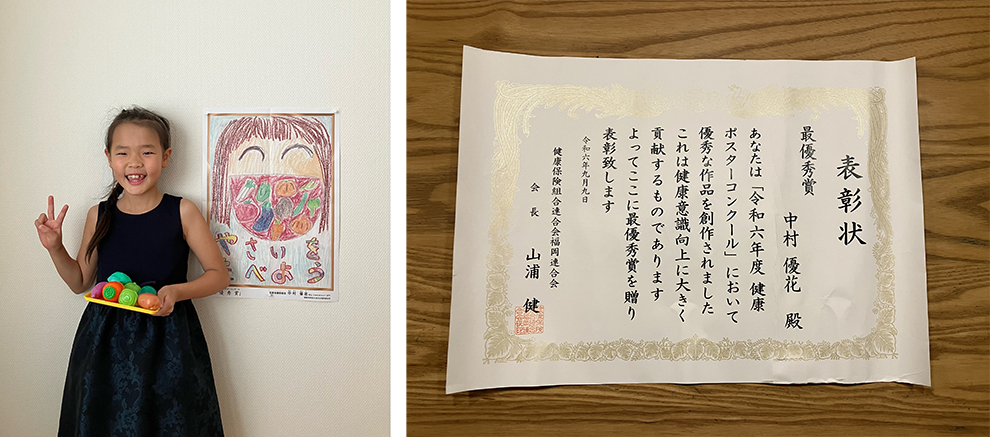 やさいを
たべよう
表彰状
最優秀賞
中村 優花 殿
あなたは「令和六年度 健康
ポスターコンクール」において
優秀な作品を創作されました
これは健康意識向上に大きく
貢献するものであります
よってここに最優秀賞を贈り
表彰致します
令和六年九月九日
健康保険組合連合会福岡連合会
会長 山浦 健